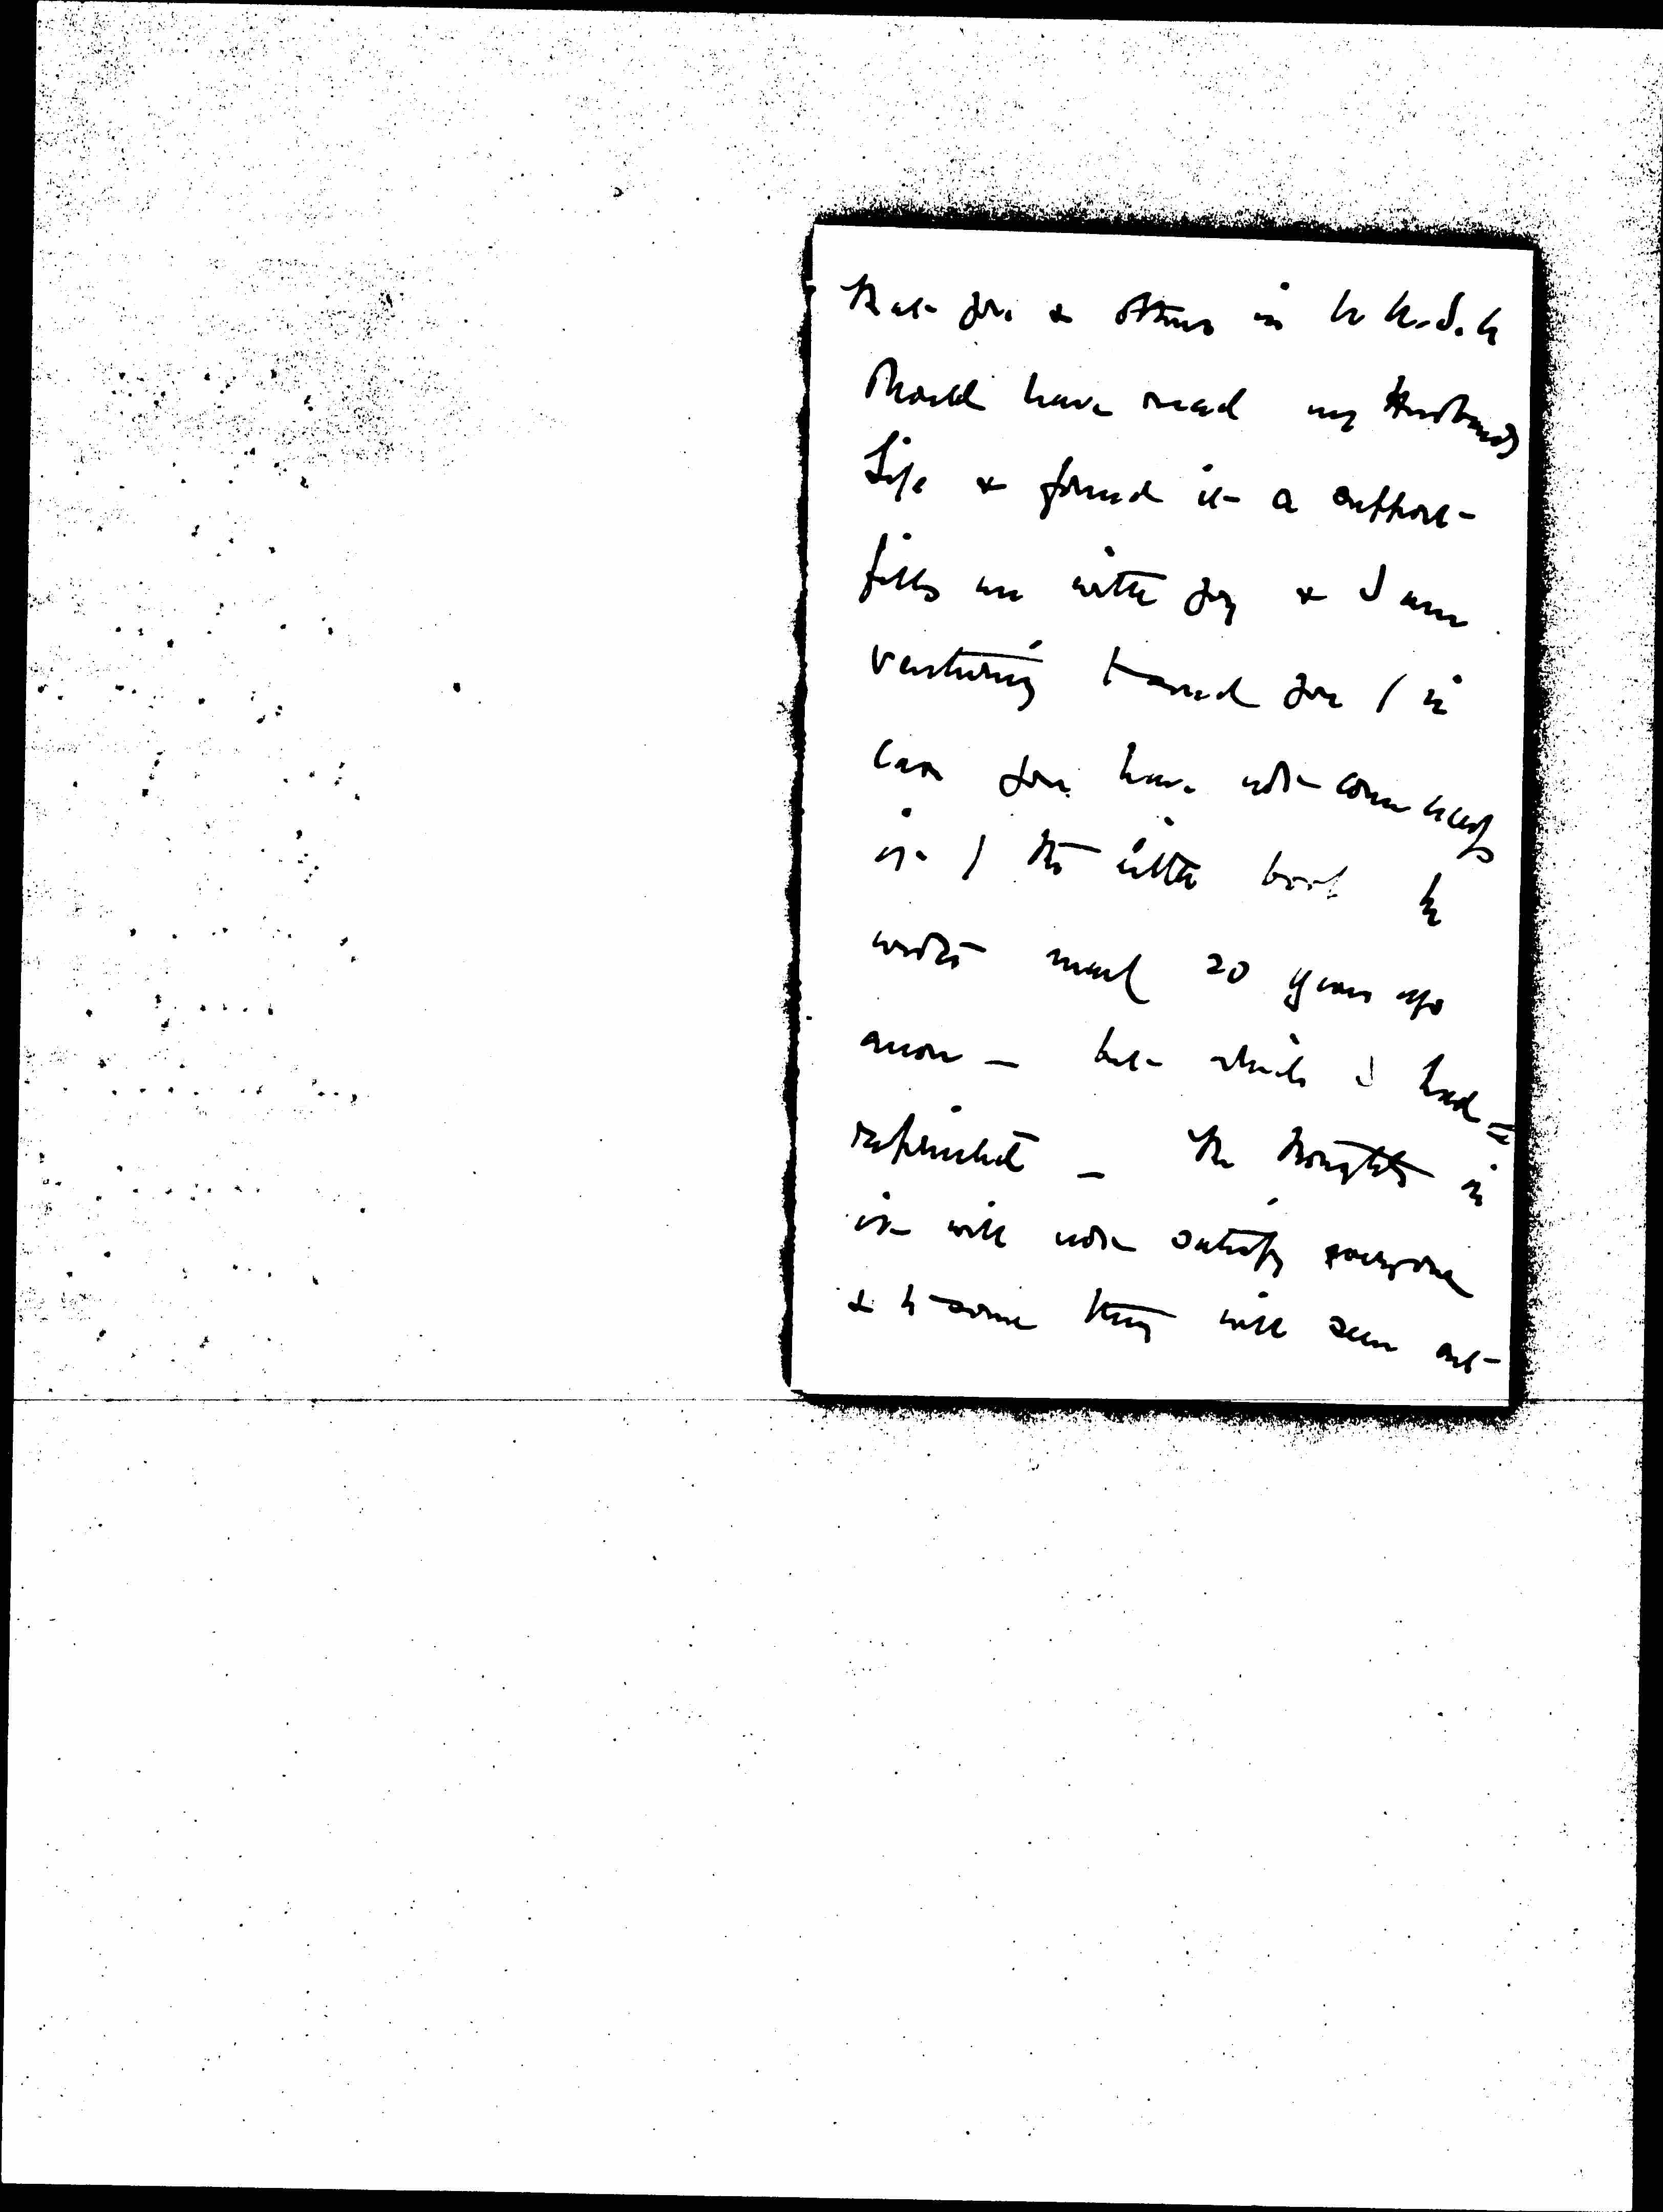 that you & others in the U.S.A
should have read my Husbands
Life & found it a support
fills me with joy & I am
venturing to send you ( in
case you have not come across
it ) the little book he
wrote nearly 20 years ago
anon — but which I had
reprinted — The thoughts in
it will not satisfy everyone
& to some they will seem out-